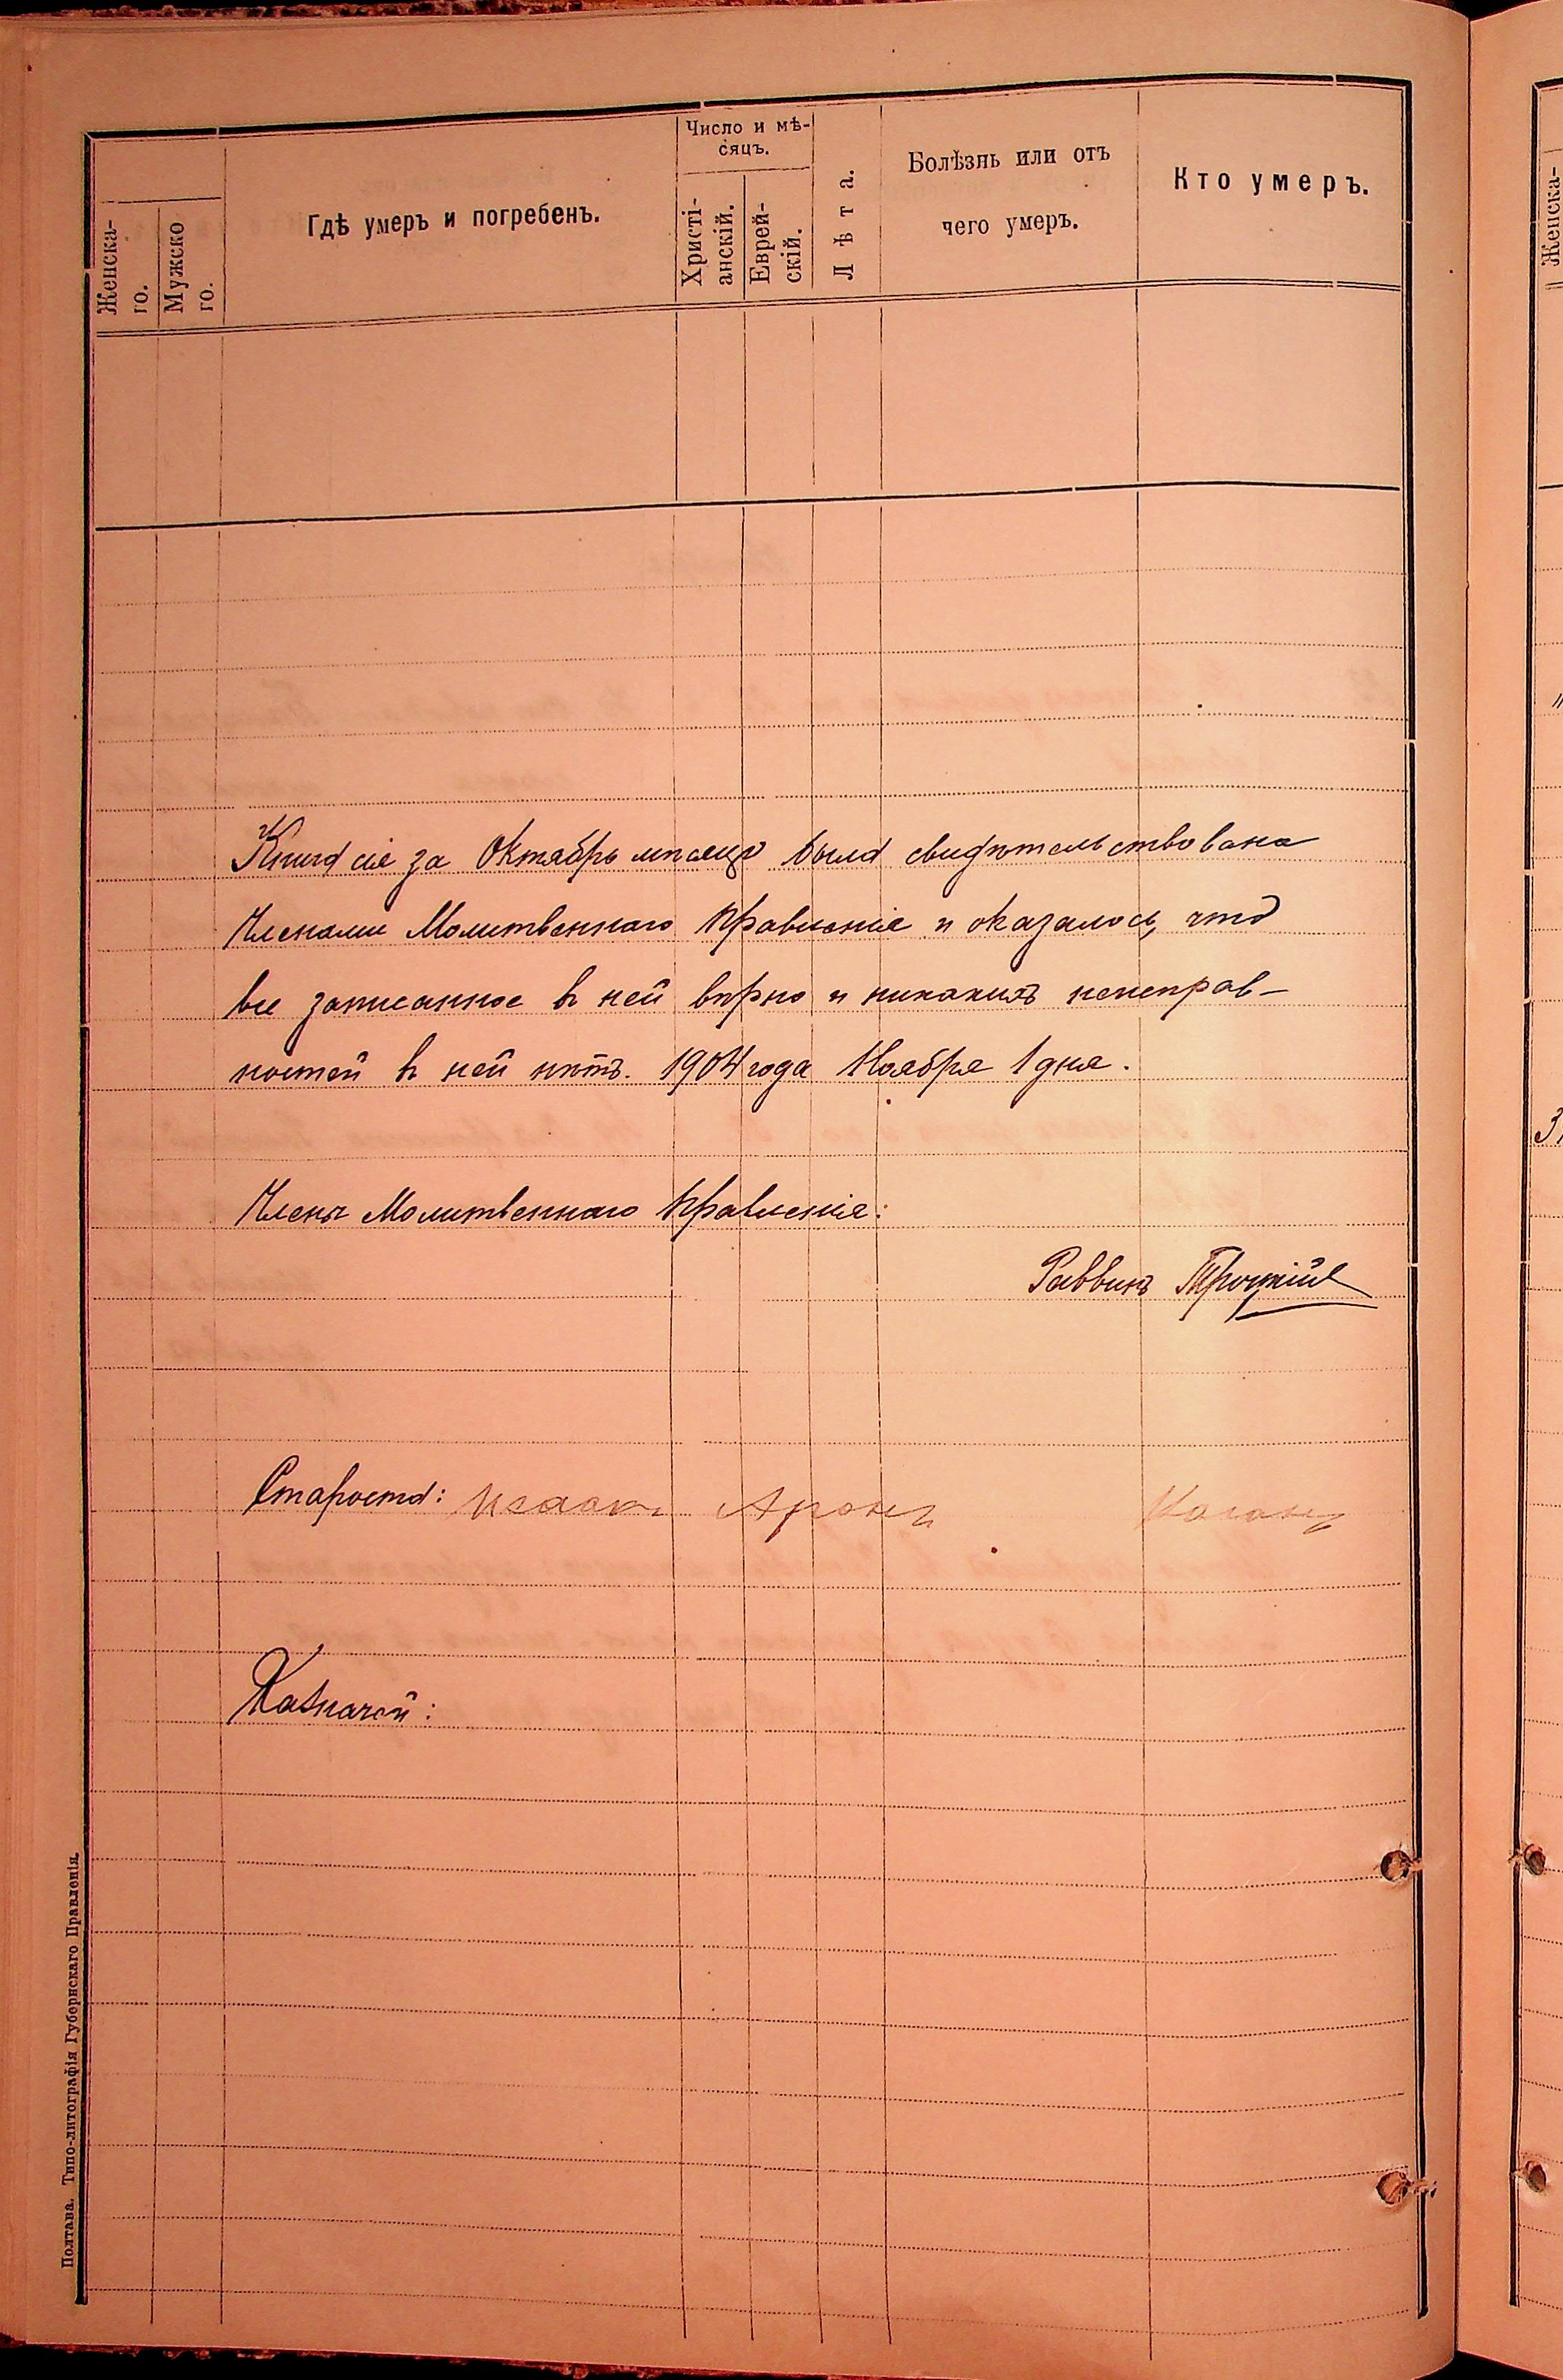 Женска-
го.
Мужско
го.
Гдѣ умеръ и погребенъ.
Число и мѣ-
сяцъ.
Христі-
анскій.
Еврей-
скій.
Лѣта.
Болѣзнь или отъ
чего умеръ.
Кто умеръ.
Женска-
Книга сія за Октябрь мѣсяцъ была свидѣтельствована
Членами Молитвеннаго Правленія и оказалось, что
все записанное въ ней вѣрно и никакихъ неисправ-
ностей въ ней нѣтъ. 1904 года Ноября 1 дня.
Члены Молитвеннаго Правленія:
Раввинъ
Староста: Исаакъ Аронъ Коганъ
Казначей:
Полтава. Типо-литографія Губернскаго Правленія.